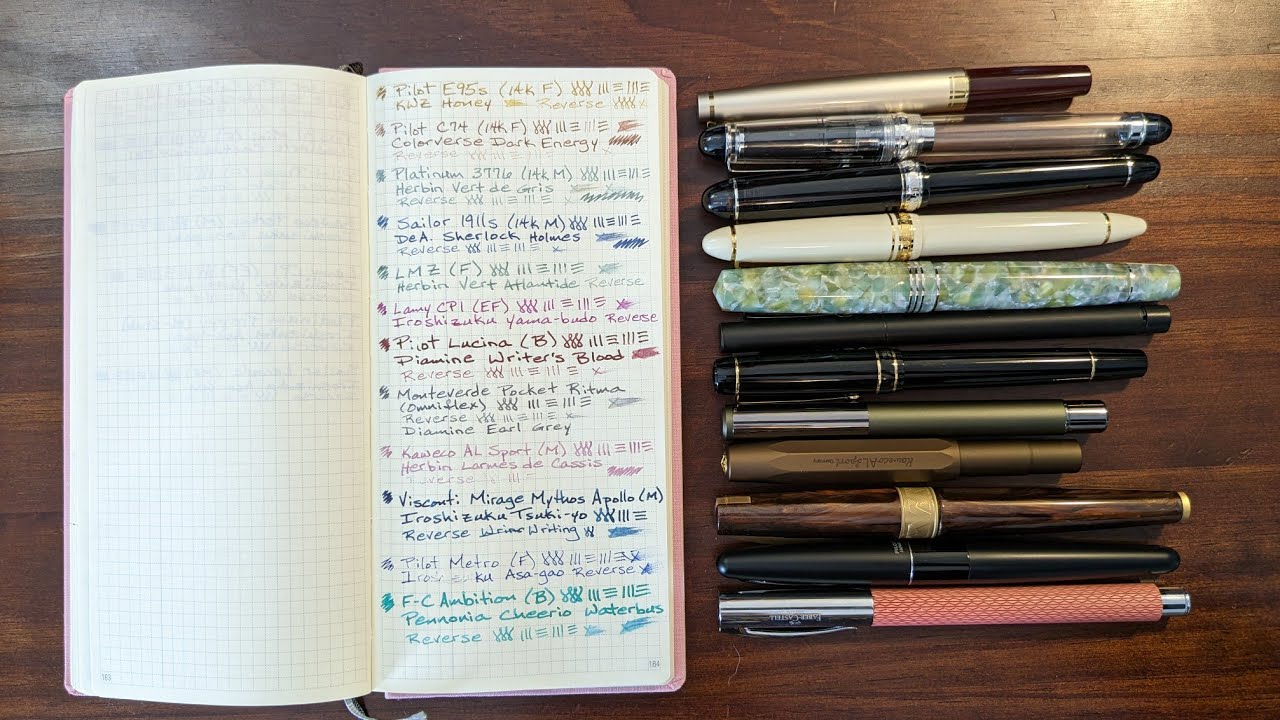 Pilot E95s (14k F)
KWZ Honey Reverse
Pilot C74 (14k F)
Colorverse Dark Energy
Reverse
Platinum 3776 (14k M)
Herbin Vert de Gris
Reverse
Sailor 1911s (14k M)
DeA. Sherlock Holmes
Reverse
LMZ (F)
Herbin Vert Atlantide Reverse
Lamy CP1 (EF)
Iroshizuku yama-budo Reverse
Pilot Lucina (B)
Diamine Writer's Blood
Reverse
Monteverde Pocket Ritma
(Omniflex)
Reverse
Diamine Earl Grey
Kaweco AL Sport (M)
Herbin Larmes de Cassis
Reverse
Visconti Mirage Mythos Apollo (M)
Iroshizuku Tsuki-yo
Reverse Writing
Pilot Metro (F)
Iroshizuku Asa-gao Reverse
F-C Ambition (B)
Pennonia Cheerio Waterbus
Reverse
183
184
Kaweco AL Sport Germany
FABER-CASTELL